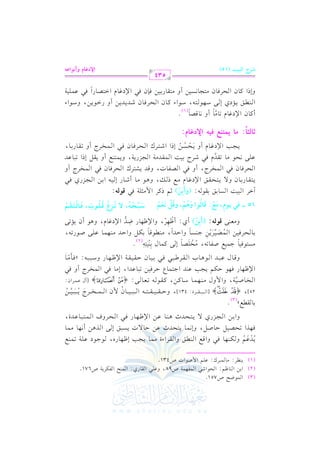 شرح البيت (٥٦)
الإدغام وأنواعه
٤٣٥
وإذا كان الحرفان متجانسين أو متقاربين فإن في الإدغام اختصاراً في عملية
النطق يؤدي إلى سهولته، سواء كان الحرفان شديدين أو رخوين، وسواء
أكان الإدغام تاماً أو ناقصاً(١).
ثالثاً: ما يمتنع فيه الإدغام:
يجب الإدغام أو يَحْسُنُ إذا اشترك الحرفان في المخرج أو تقاربا،
على نحو ما تقدَّم في شرح بيت المقدمة الجزرية، ويمتنع أو يقل إذا تباعد
الحرفان في المخرج، أو في الصفات، وقد يشترك الحرفان في المخرج أو
يتقاربان ولا يتحقق الإدغام مع ذلك، وهو ما أشار إليه ابن الجزري في
آخر البيت السابق بقوله: (وَأَبِنْ) ثم ذكر الأمثلة في قوله:
ومعنى قوله: (وَأَبِنْ) أي: أَظْهِرْ، والإظهار ضِدُّ الإدغام، وهو أن يؤتى
بالحرفين جنساً واحداً، منطوقاً بكل واحد منهما على صورته،
مستوفياً جميع صفاته، إلى كمال
وقال عبد الوهاب القرطبي في بيان حقيقة الإظهار وسببه: «فأمَّا
الإظهار فهو حكم يجب عند اجتماع حرفين تباعدا، إما في المخرج أو في
الخاصيَّة، والأول منهما ساكن، كقوله تعالى: [آل عمران:
وحقيقته البيان لأن المخرج
بالقطع»(٣).
وابن الجزري لا يتحدث هنا عن الإظهار في الحروف المتباعدة،
فهذا تحصيل حاصل، وإنما يتحدث عن حالات يسبق إلى الذهن أنها مما
يُدْغَمُ ولكنها في واقع النطق والقراءة مما يجب إظهاره، لوجود علة تمنع
(١) ينظر: علم الأصوات ص١٣٤.
(٢) ابن الناظم: الحواشي المفهمة ص٥٩، وعلي القاري: المنح الفكرية ص١٧٦.
(٣) الموضح ص١٥٧.